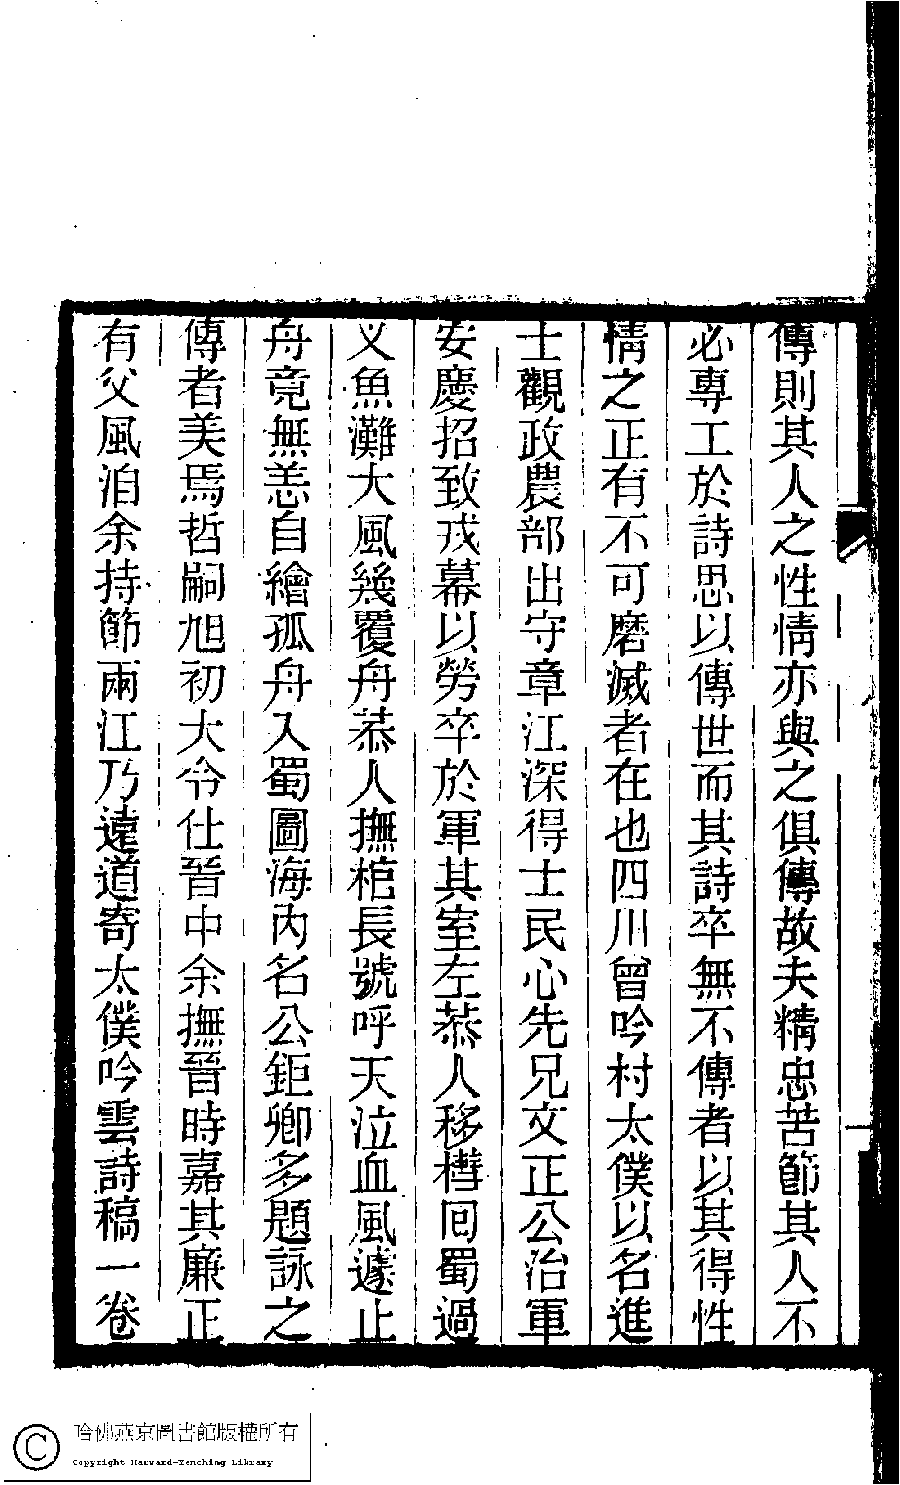 傳則其人之性情亦與之俱傳故夫精忠苦節其人不
必專工於詩思以傳世而其詩卒無不傳者以其得性
情之正有不可磨滅者在也四川曾吟村太僕以名進
士觀政農部出守章江深得士民心先兄文正公治軍
安慶招致戎幕以勞卒於軍其室左恭人移櫘囘蜀過
叉魚灘大風幾覆舟恭人撫棺長號呼天泣血風遽止
舟竟無恙自繪孤舟入蜀圖海內名公鉅卿多題詠之
傳者美焉哲嗣旭初大令仕晉中余撫晉時嘉其廉正
有父風洎余持節兩江乃遠道寄太僕吟雲詩稿一卷
哈佛燕京圖書館版權所有
Copyright Harvard-Yenching Library